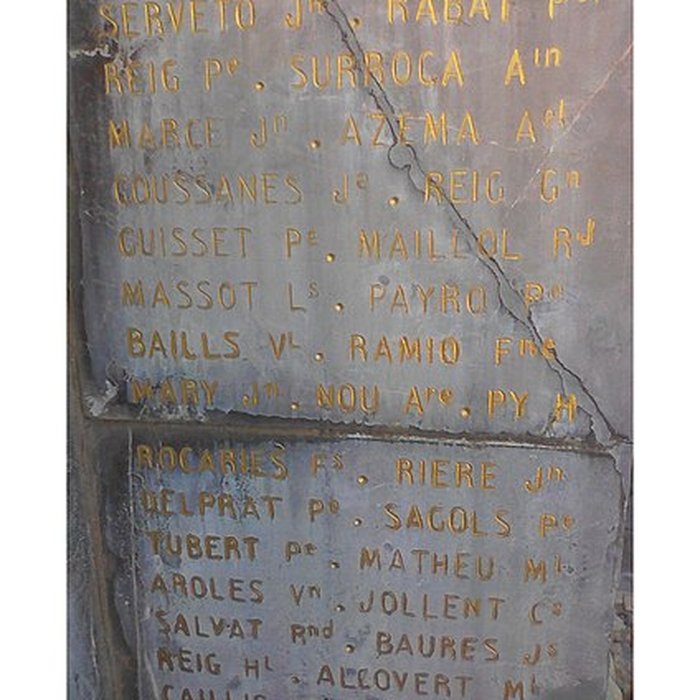 SERVETO Jⁿ . RABAT
REIG Pᵉ . SURROCA Aⁱⁿ
MARCE Jⁿ . AZEMA Aᵉˡ
COUSSANES Jᵉ . REIG Gⁿ
GUISSET Pᵉ . MAILLOL Rᵈ
MASSOT Lˢ . PAYRO Pᵉ
BAILLS Vᴸ . RAMIO Fⁿᵉ
MARY Jⁿ . NOU Aʳᵉ . PY H
ROCARIES Fˢ . RIERE Jⁿ
DELPRAT Pᵉ . SAGOLS Pᵉ
TUBERT Pᵉ . MATHEU Mᴸ
AROLES Vⁿ . JOLLENT Cˢ
SALVAT Rⁿᵈ . BAURES Jˢ
REIG Hᴸ . ALCOVERT Mᴸ